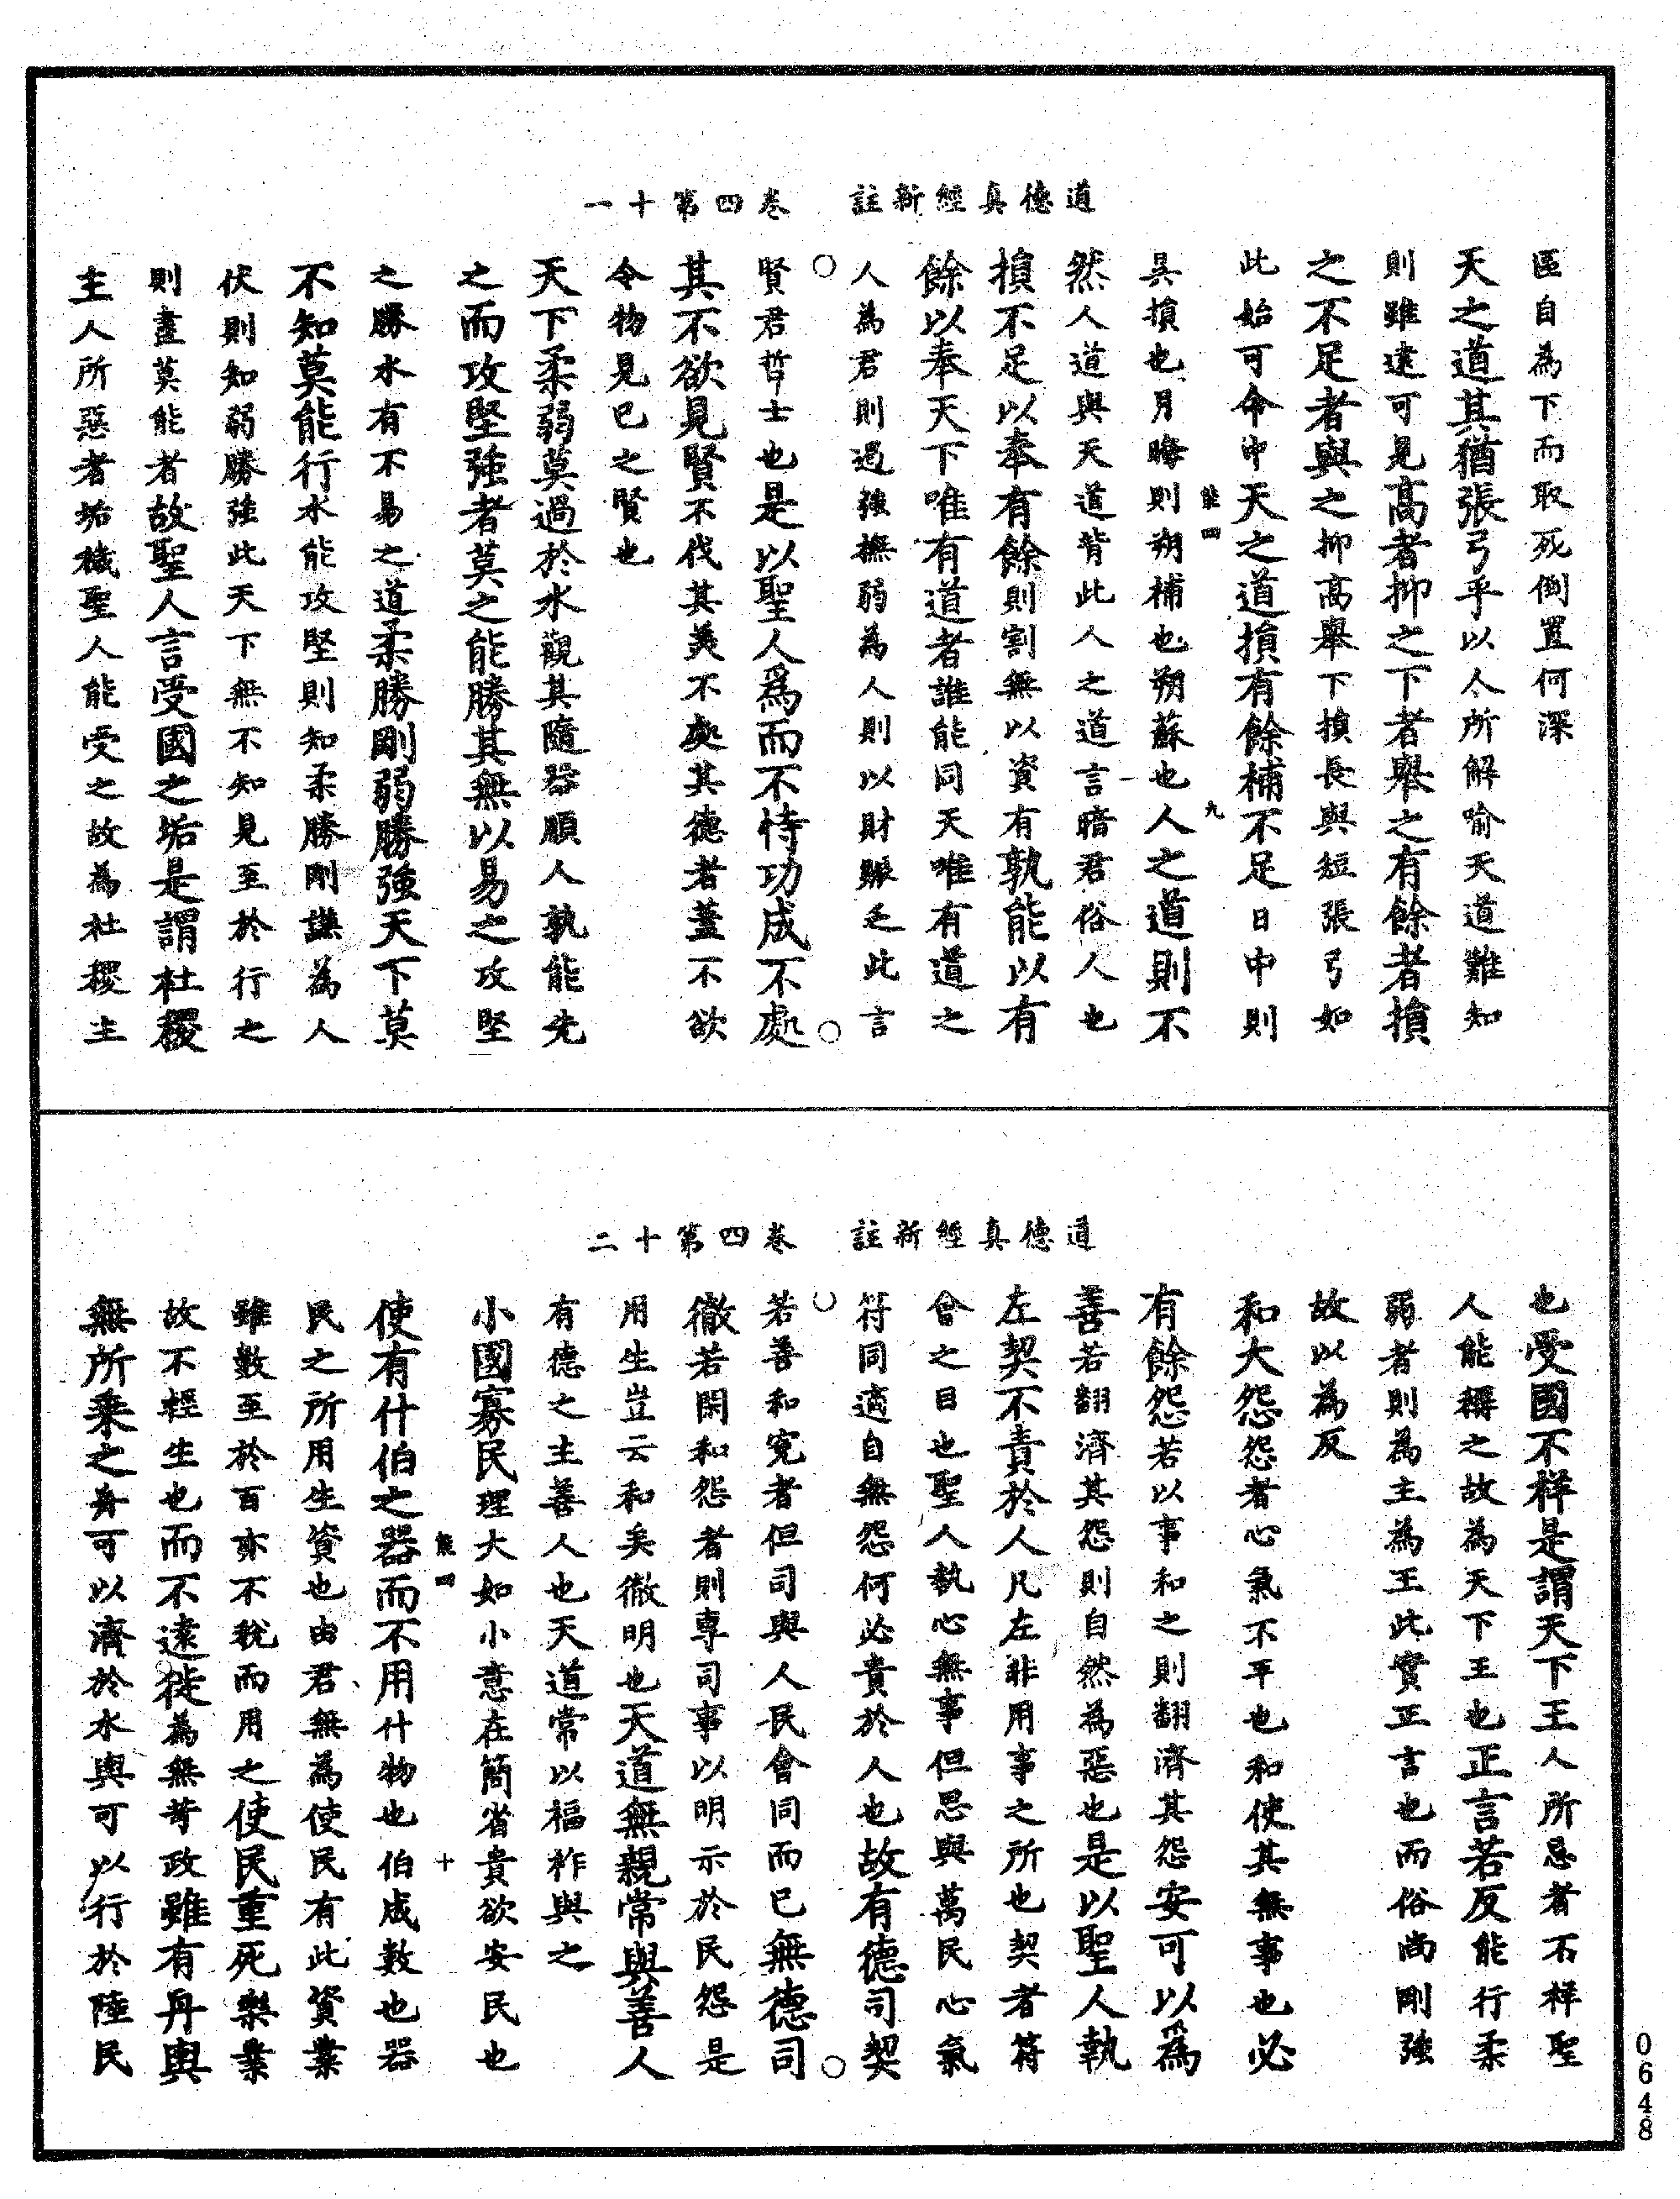 道德真經新註　卷四第十一
區自為下而取死倒置何深
天之道其猶張弓乎以人所解喻天道難知
則雖遠可見高者抑之下者舉之有餘者損
之不足者與之抑高舉下損長與短張弓如
此始可命中天之道損有餘補不足日中則
昃損也月晦則朔補也朔蘇也人之道則不
能四　九
然人道與天道背此人之道言暗君俗人也
損不足以奉有餘則割無以資有孰能以有
餘以奉天下唯有道者誰能同天唯有道之
人為君則遏強撫弱為人則以財賑乏此言
賢君哲士也是以聖人爲而不恃功成不處
其不欲見賢不伐其美不處其德者蓋不欲
令物見已之賢也
天下柔弱莫過於水觀其隨器順人孰能先
之而攻堅強者莫之能勝其無以易之攻堅
之勝水有不易之道柔勝剛弱勝強天下莫
不知莫能行水能攻堅則知柔勝剛謙為人
伏則知弱勝強此天下無不知見至於行之
則盡莫能者故聖人言受國之垢是謂社稷
主人所惡者垢穢聖人能受之故為社稷主
道德真經新註　卷四第十二
也受國不祥是謂天下王人所忌者不祥聖
人能擇之故為天下王也正言若反能行柔
弱者則為主為王此實正言也而俗尚剛強
故以為反
和大怨怨者心氣不平也和使其無事也必
有餘怨若以事和之則翻濟其怨安可以爲
善若翻濟其怨則自然為惡也是以聖人執
左契不責於人凡左非用事之所也契者符
會之目也聖人執心無事但思與萬民心氣
符同適自無怨何必責於人也故有德司契
若善和寃者但司與人民會同而已無德司
徹若閑和怨者則專司事以明示於民怨是
用生豈云和矣徹明也天道無親常與善人
有德之主善人也天道常以福祚與之
小國寡民理大如小意在簡省貴欲安民也
使有什伯之器而不用什物也伯成數也器
能四　十
民之所用生資也由君無為使民有此資業
雖數至於百亦不稅而用之使民重死樂業
故不輕生也而不遠徙為無苛政雖有舟輿
無所乗之舟可以濟於水輿可以行於陸民
0648